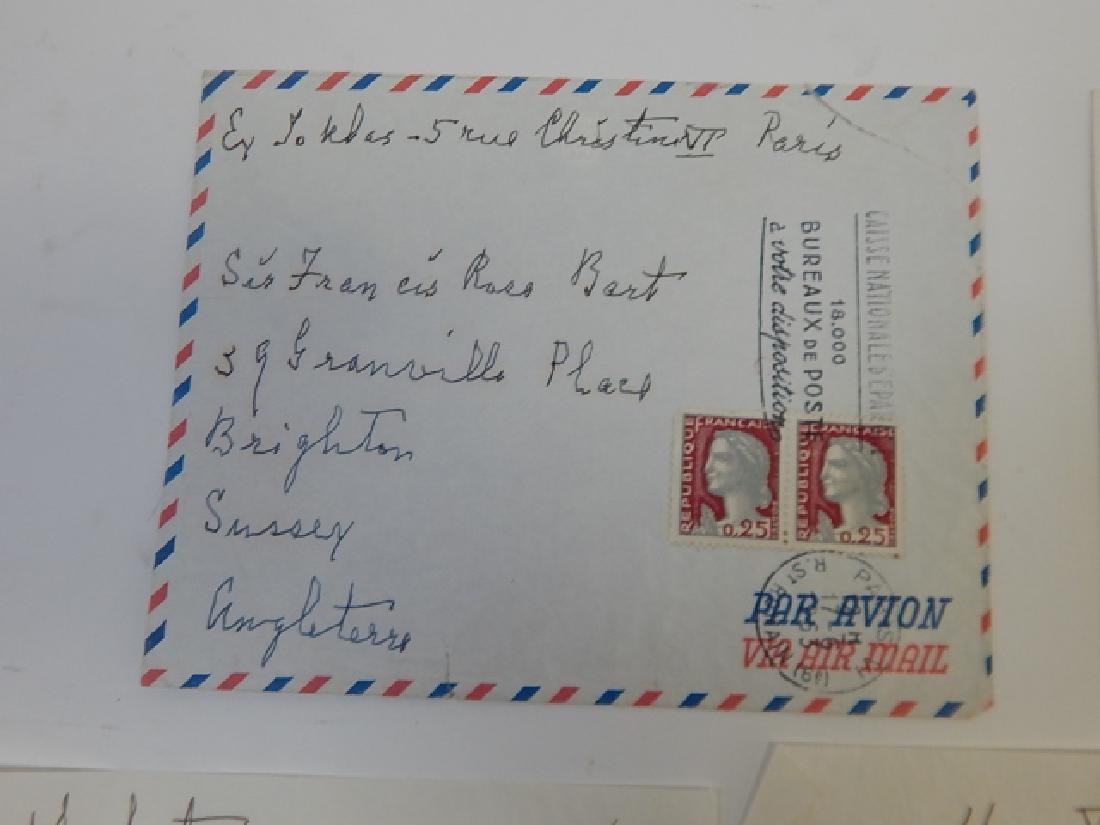 Ex Toklas - 5 rue Christine VI Paris
Sir Francis Rose Bart
39 Granville Place
Brighton
Sussex
Angleterre
CAISSE NATIONALE D'EPAR
18.000
BUREAUX DE POSTE
à votre disposition
REPUBLIQUE FRANCAISE
0,25
REPUBLIQUE FRANCAISE
0,25
PAR AVION
VIA AIR MAIL